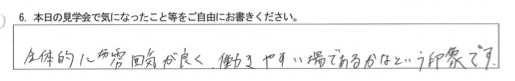 6. 本日の見学会で気になったこと等をご自由にお書きください。
全体的に雰囲気が良く、働きやすい場であるかなという印象です。